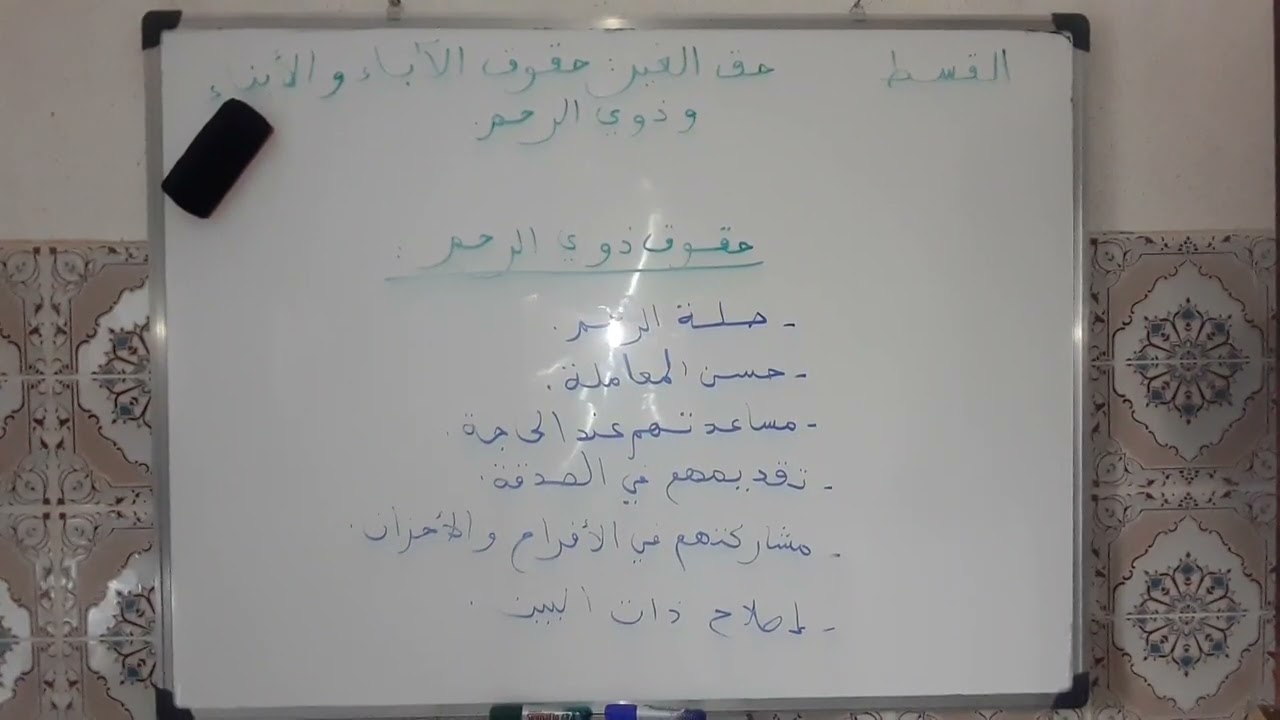 القسط حق الغير: حقوق الآباء والأبناء
وذوي الرحم.
حقوق ذوي الرحم:
- صلة الرحم.
- حسن المعاملة.
- مساعدتهم عند الحاجة.
- تقديمهم في الصدقة.
- مشاركتهم في الأفراح والأحزان.
- إصلاح ذات البين.